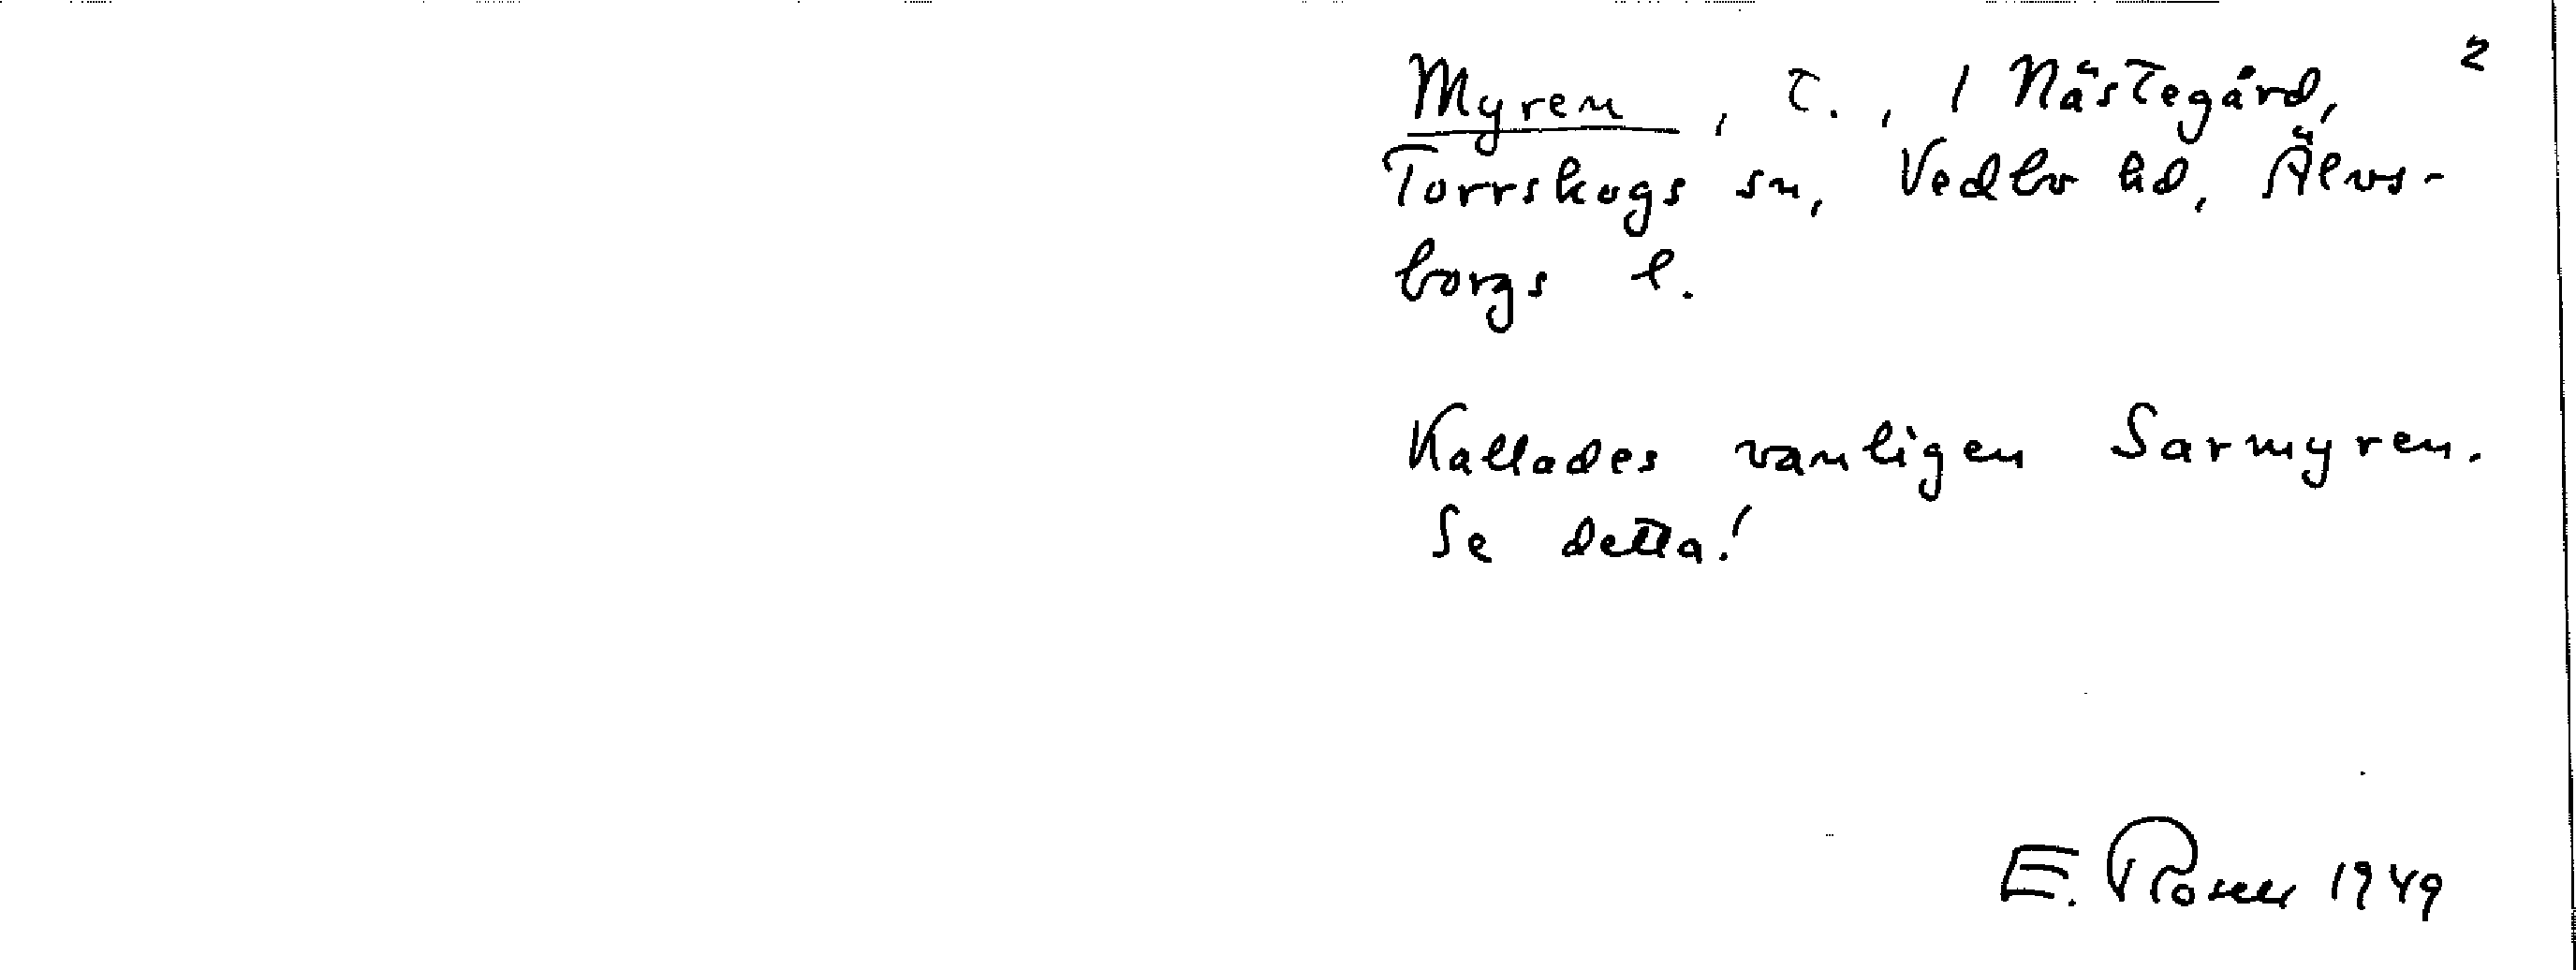 2
Myren, t., 1 Nästegård,
Torrskogs sn, Vedbo hd, Älvs-
borgs l.
Kallades vanligen Sarmyren.
Se detta!
E. Rosell 1949